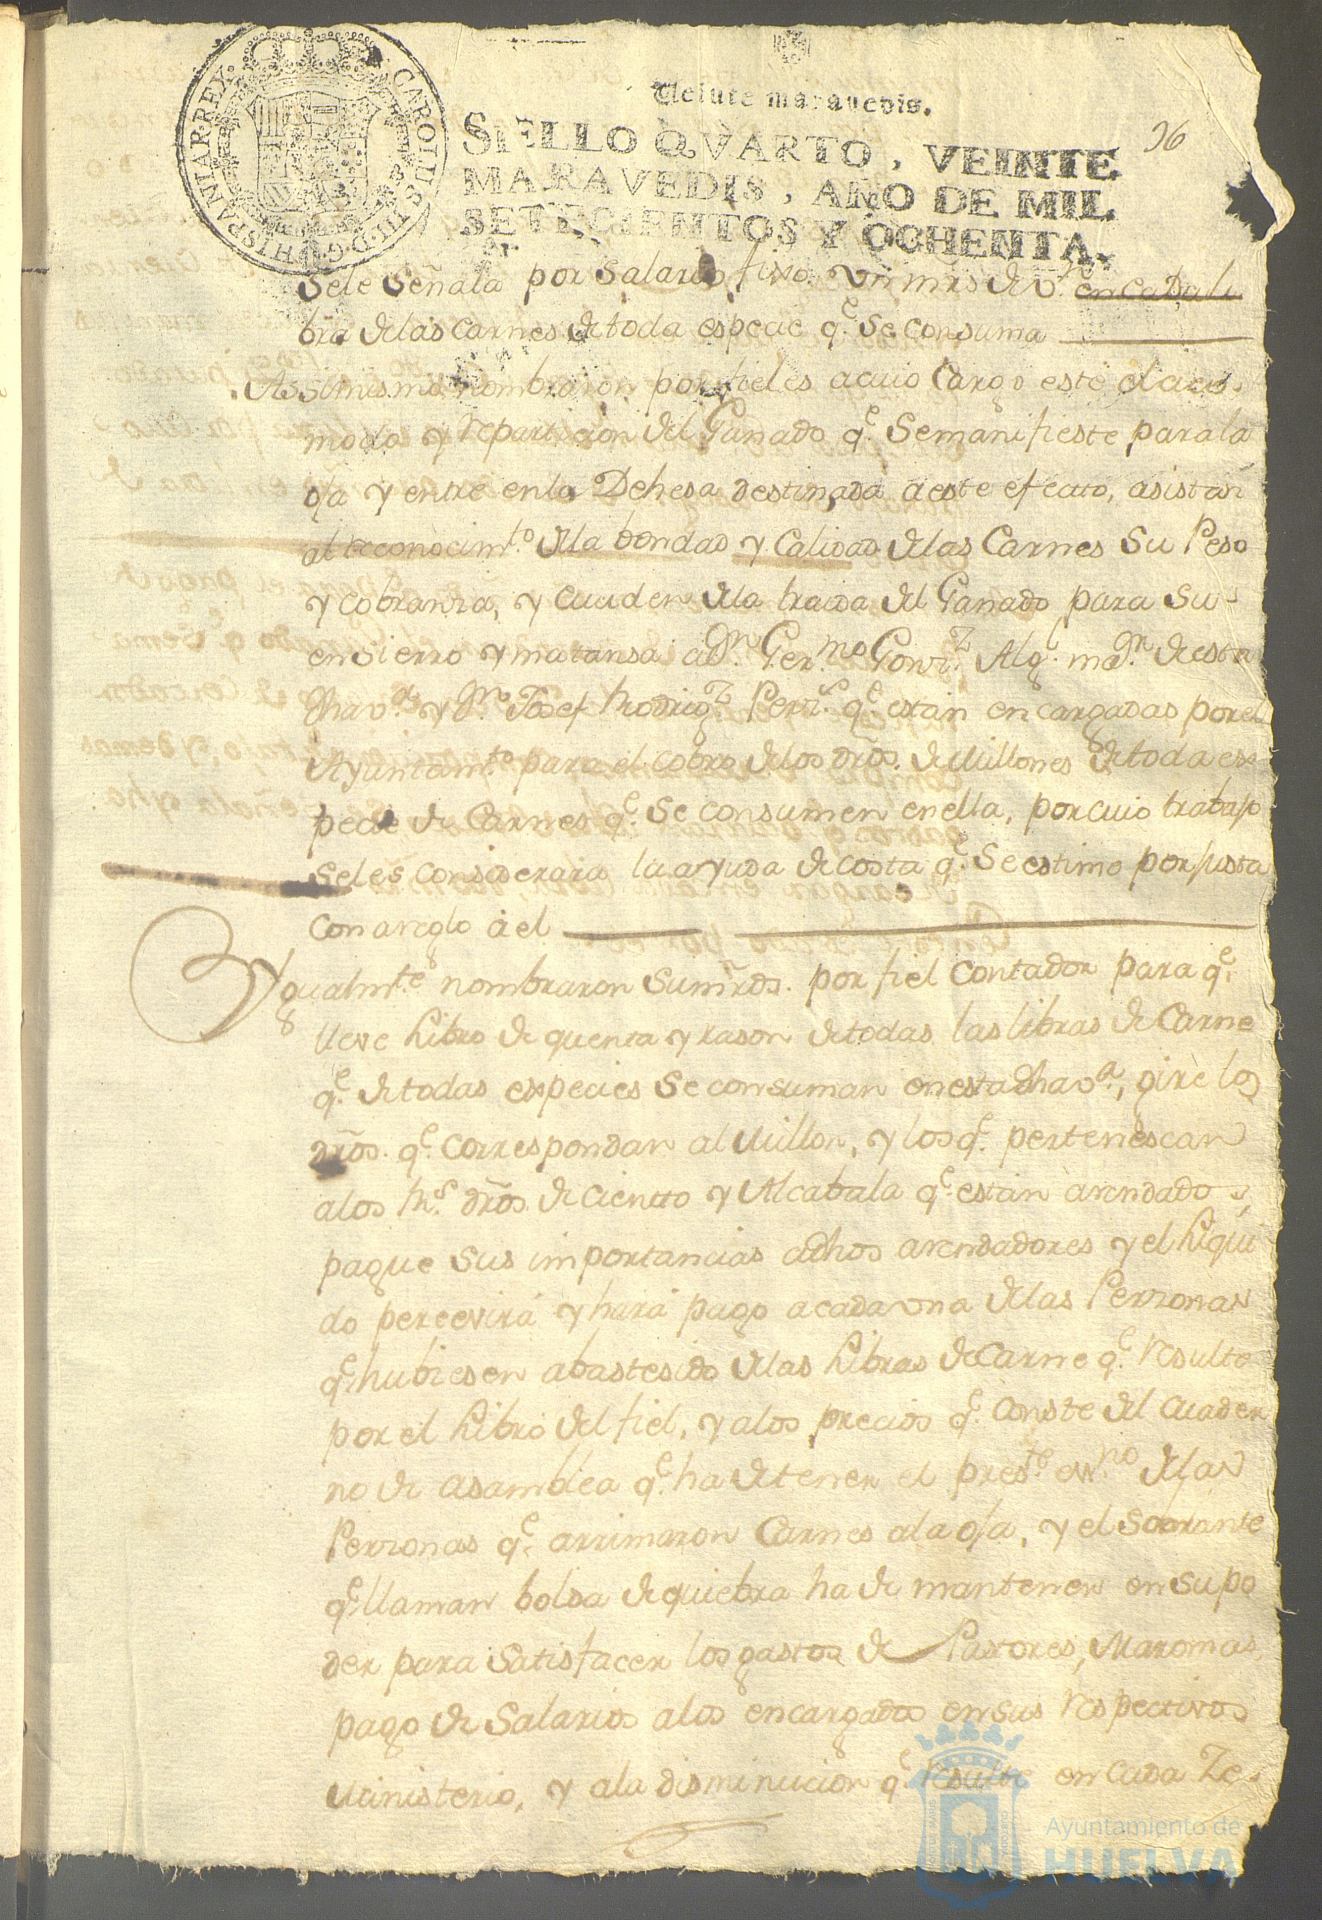 CAROLUS III D G HISPANIAR REX
Veinte maravedis.
SELLO QVARTO, VEINTE
MARAVEDIS, AÑO DE MIL
SETECIENTOS Y OCHENTA.
96
Sele Señala por Salario fixo. Vn mrs de v.n en cada li
bra delas carnes de toda especie q.e Se consuma
Assimismo nombraron por fieles a cuio Cargo este el aco-
modo y repartision del Ganado q.e Semanifieste parala
oja y entre enla Dehesa destinada aeste efecto, asistan
al reconocim.to dela bondad y Calidad delas Carnes Su Peso
y cobranza, y cuiden dela traida del Ganado para Su-
ensierro y matansa a D.n Ger.mo Gonz.z Alg.l m.or de esta
dha v.a y D.n Josef Rodrig.z Per.z q.e estan encargadas por el
Ayuntam.to para el cobro delos dr̃os. de Millones de toda es-
pecie de Carnes q.e Se consumen enella, por cuio trabajo
Seles considerara la ayuda de costa q.e Se estimo por justa
con areglo a el
Ygualm.te nombraron Sumr̃ds. por fiel Contador para q.e
lleve Libro de quenta y rason de todas las libras de Carne
q.e de todas especies Se consuman en esta dha v.a, gire los
dr̃os. q.e correspondan al Millon, y los q.e pertenescan
alos R.s dr̃os. de ciento y Alcabala q.e estan arendados,
pague Sus importancias adhos arendadores y el Liqui
do percevirá y hará pago acada vna delas Perzonas
q.e hubiesen abastesido delas Libras de Carne q.e resulte
por el Libro del fiel, y alos precios q.e conste del cuader
no de asamblea q.e ha de tener el pres.te es.no delas
Perzonas q.e arrimaron Carnes ala oja, y el Sobrante
q.e llaman bolsa de quiebra ha de mantener en su po
der para Satisfacer los gastos de Pastores, Maromas,
pago de Salarios alos encargados en sus respectivos
Ministerio, y ala disminucion q.e resulte en cada Re-
Ayuntamiento de
HUELVA